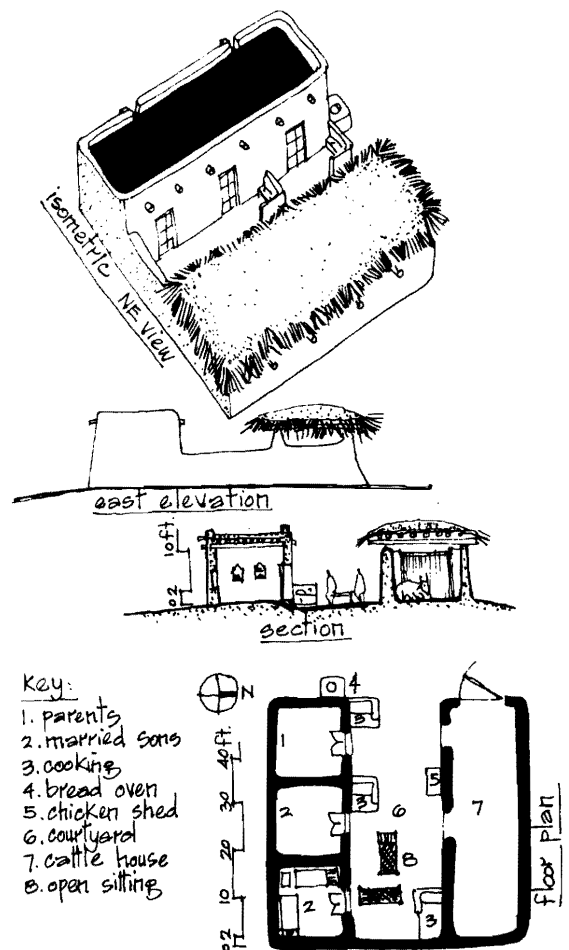 isometric NE view
east elevation
10ft.
2
0
section
Key:
1. parents
2. married sons
3. cooking
4. bread oven
5. chicken shed
6. courtyard
7. cattle house
8. open sitting
N
4
40ft.
30
20
10
2
0
1
3
5
2
3
6
7
8
2
3
floor plan